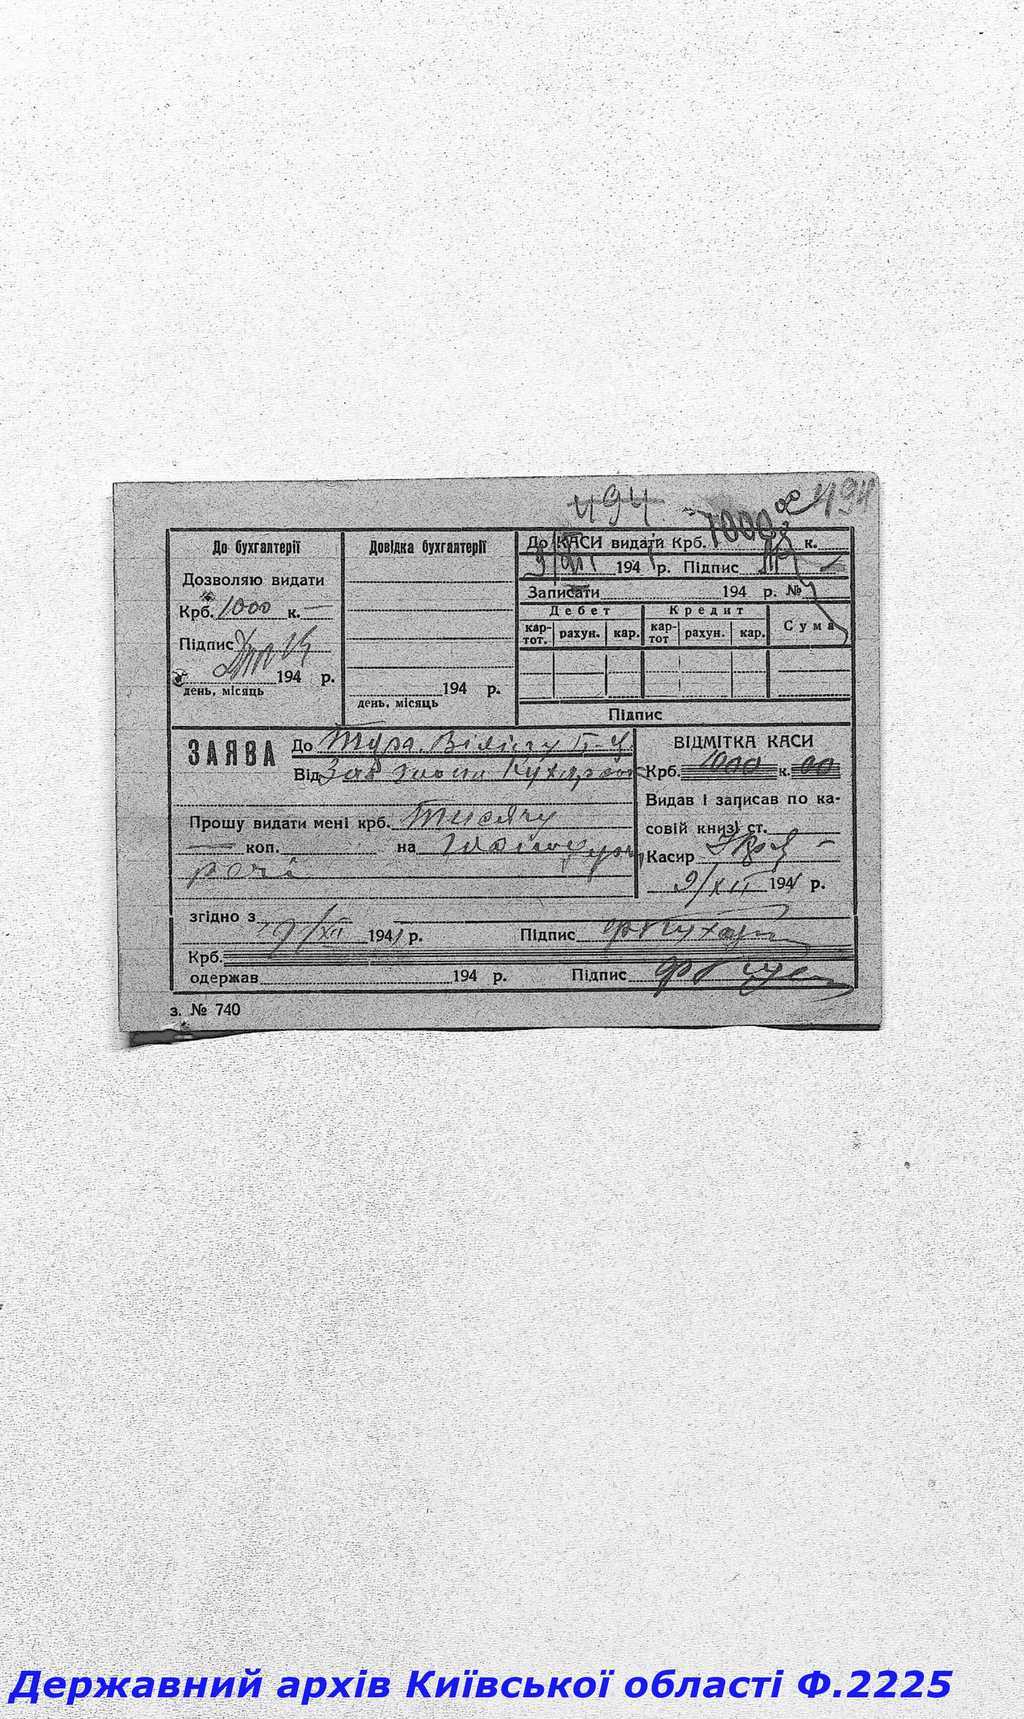 494
494
До бухгалтерії
Дозволяю видати
Крб. 1000 к. —
Підпис
194 р.
день, місяць
Довідка бухгалтерії
194 р.
день, місяць
1000
До КАСИ видати Крб. к.
9/XII 1941 р. Підпис
Записати 194 р. №
Дебет Кредит Сума
кар-тот. рахун. кар. кар-тот рахун. кар.
Підпис
ЗАЯВА До
Від Зав
Прошу видати мені крб. Тисячу
— коп. на
речі
ВІДМІТКА КАСИ
Крб. 1000 к. 00
Видав і записав по ка-
совій книзі ст.
Касир
9/XII 1941 р.
згідно з
9/XII 1941 р. Підпис
Крб.
одержав 194 р. Підпис
з. № 740
Державний архів Київської області Ф.2225